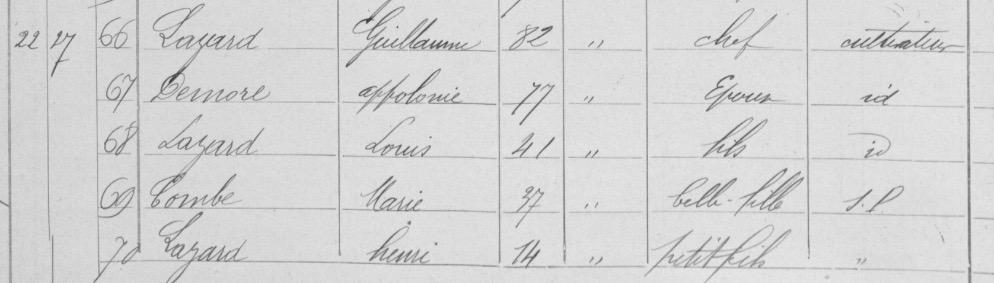 22 27 66 Lazard Guillaume 82 " chef cultivateur
67 Demore appolonie 77 " Epouse id
68 Lazard Louis 41 " fils id
69 Combe Marie 37 " belle-fille s.p
70 Lazard henri 14 " petit fils "